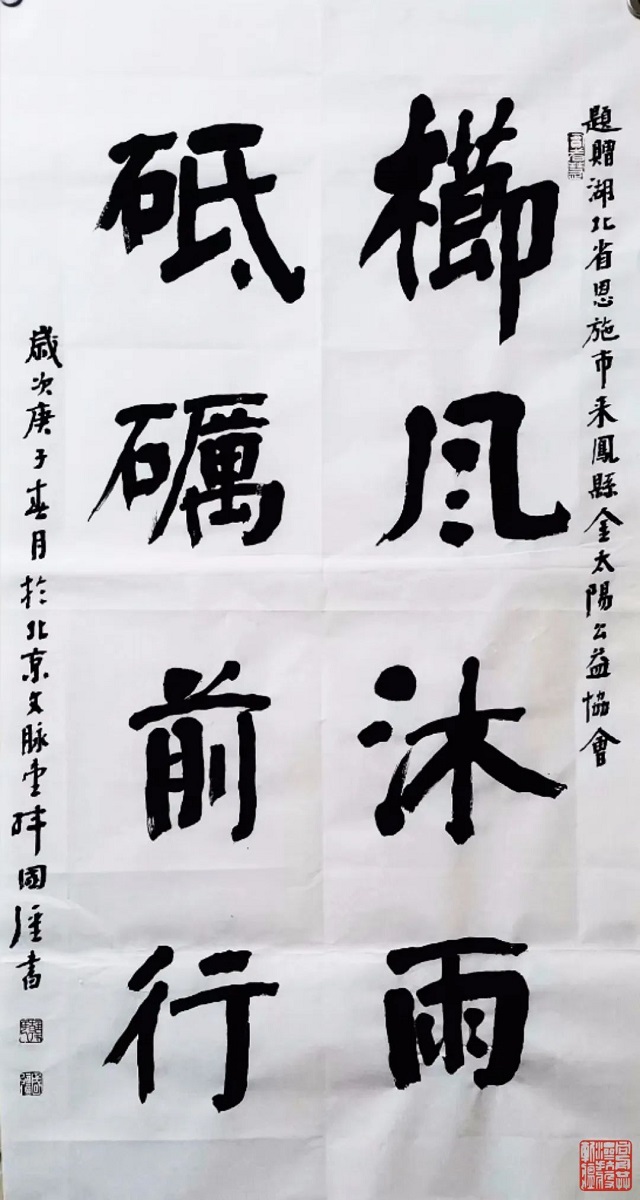 題贈湖北省恩施市来鳳縣金太陽公益協會
櫛风沐雨
砥礪前行
歲次庚子春月於北京文脉堂
國強書